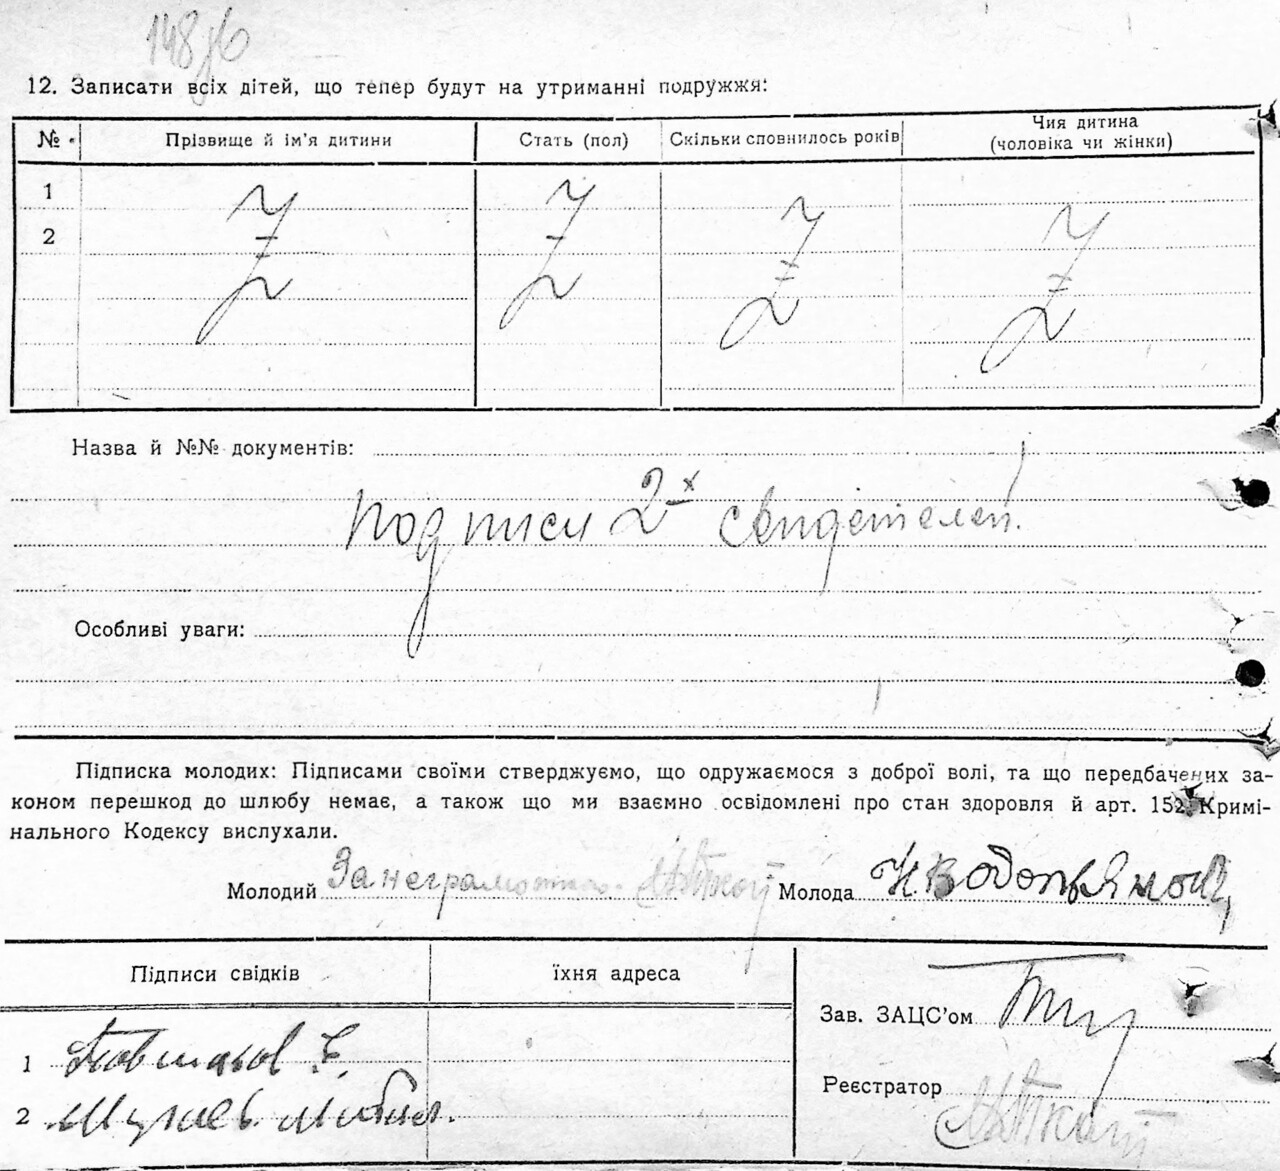 148
12. Записати всіх дітей, що тепер будут на утриманні подружжя:
№ Прізвище й ім'я дитини Стать (пол) Скільки сповнилось років Чия дитина
(чоловіка чи жінки)
1
2
Назва й №№ документів:
подписи 2х свидетелей.
Особливі уваги:
Підписка молодих: Підписами своїми стверджуємо, що одружаємося з доброї волі, та що передбачених за-
коном перешкод до шлюбу немає, а також що ми взаємно освідомлені про стан здоровля й арт. 152 Кримі-
нального Кодексу вислухали.
Молодий За неграмотного Молода Н Водопьянова
Підписи свідків їхня адреса
Зав. ЗАЦС'ом
1
Реєстратор
2